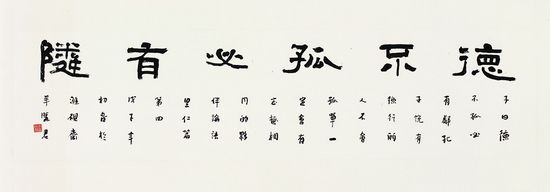 德不孤必有隣
子曰德
不孤必
有鄰孔
子說有
德行的
人不會
孤單一
定會有
志趣相
同的夥
伴論語
里仁篇
第四
戊子年
初春於
雅硯齋